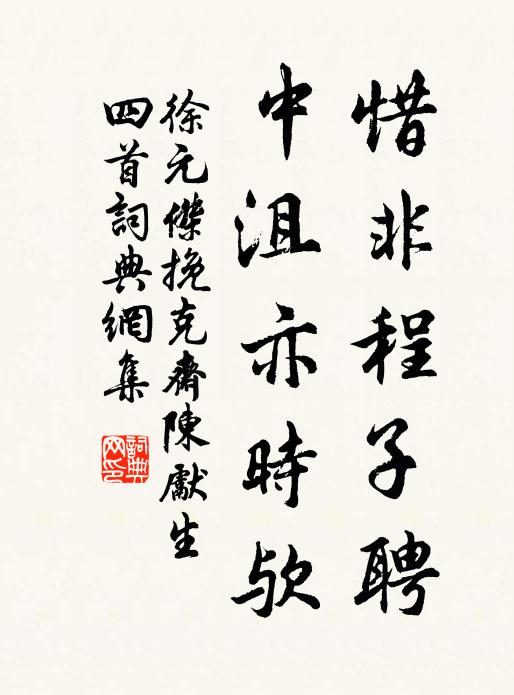 惜非程子聘
中沮亦時欤
徐元傑挽克齋陳獻生
四首詞典網集
詞典
网印